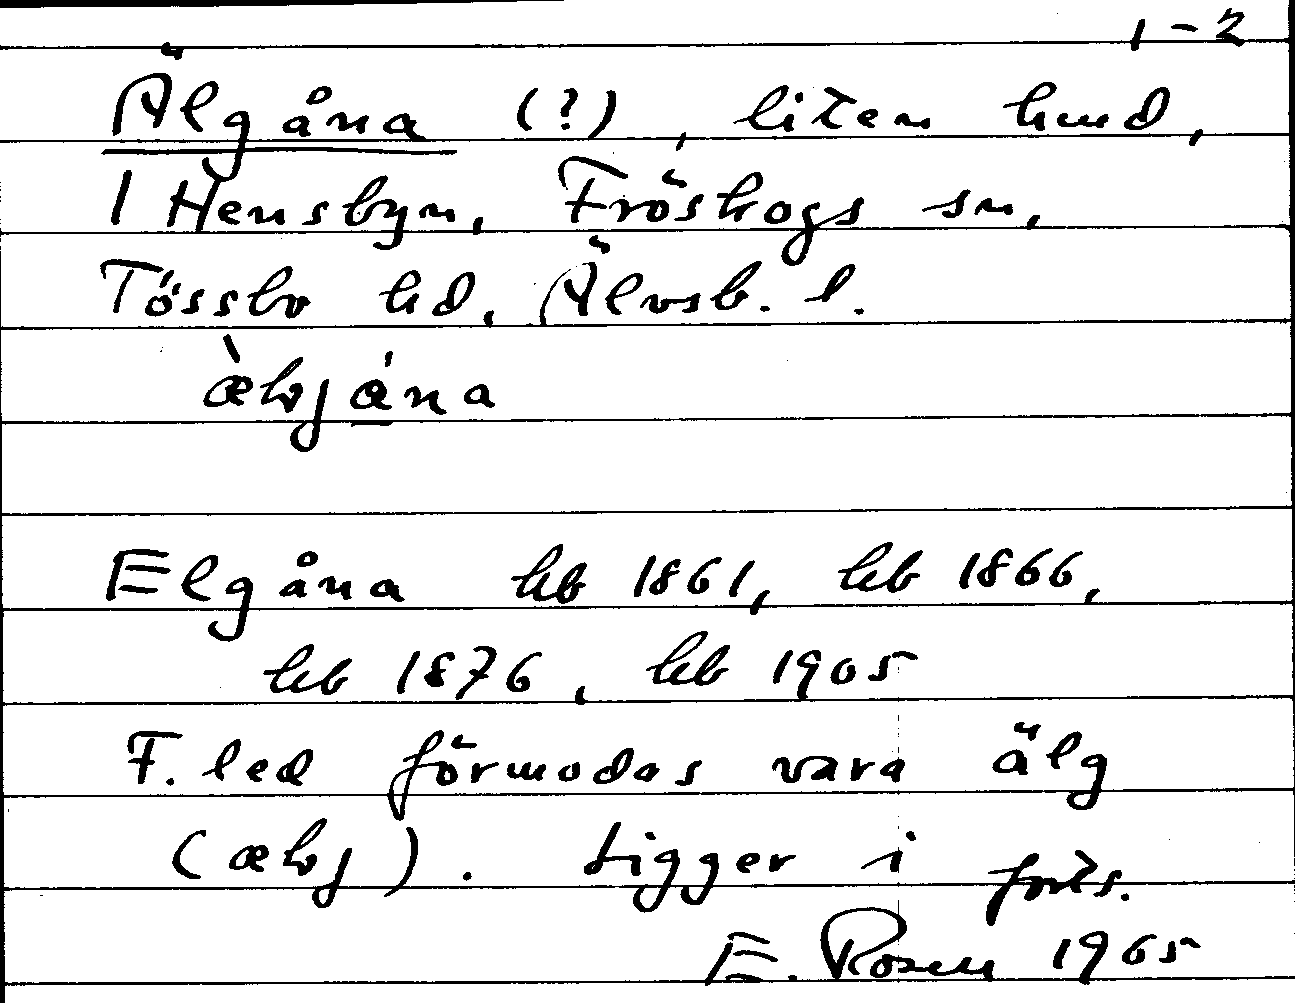 1-2
Älgåna (?), liten hmd,
I Hensbyn, Fröskogs sn,
Tössbo hd, Älvsb. l.
Elgåna hfb 1861, hfb 1866,
hfb 1876, hfb 1905
F. led förmodas vara älg
Ligger i forts.
E. Rosen 1965